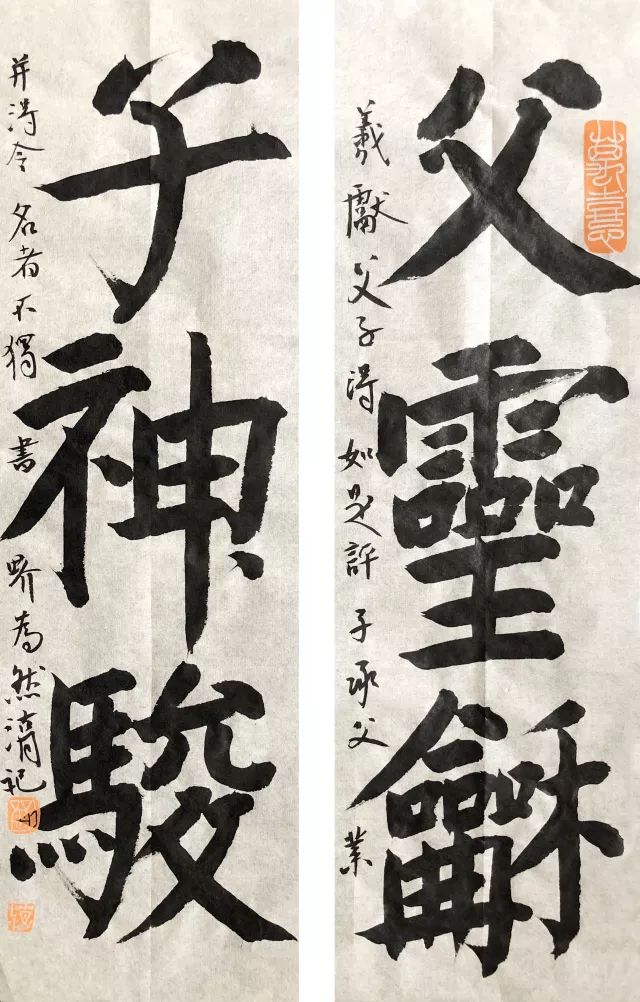 父靈龢
羲獻父子得如是許子承父業
子神駿
并得令名者不獨書畍為然